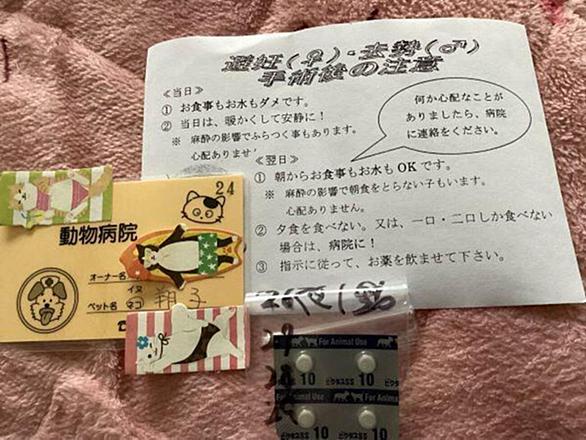 避妊(♀)・去勢(♂)
手術後の注意
≪当日≫
① お食事もお水もダメです。
② 当日は、暖かくして安静に！
※ 麻酔の影響でふらつく事もあります。
心配ありませ
何か心配なことが
ありましたら、病院
に連絡をください。
≪翌日≫
① 朝からお食事もお水も OK です。
※ 麻酔の影響で朝食をとらない子もいます。
心配ありません。
② 夕食を食べない。又は、一口・二口しか食べない
場合は、病院に！
③ 指示に従って、お薬を飲ませて下さい。
24
動物病院
オーナー名
イヌ
ペット名 ネコ 翔子
For Animal Use
10 ビクタスSS 10
For Animal Use
10 ビクタスSS 10